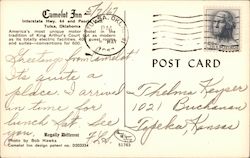 Camelot Inn
Interstate Hwy. 44 and Peoria
Tulsa, Oklahoma
America's most unique motor hotel in the
tradition of King Arthur's Court but as modern
as today's electric facilities, 400 guest rooms
and suites—conventions for 600.
Greetings from Camelot
Its quite a
place. I arrived
in time for
lunch
Regally Different
Photo by Bob Hawks
Camelot Inn design patent no. D203334
POST CARD
Thelma Keyser
1021 Buchanan
Topeka Kansas